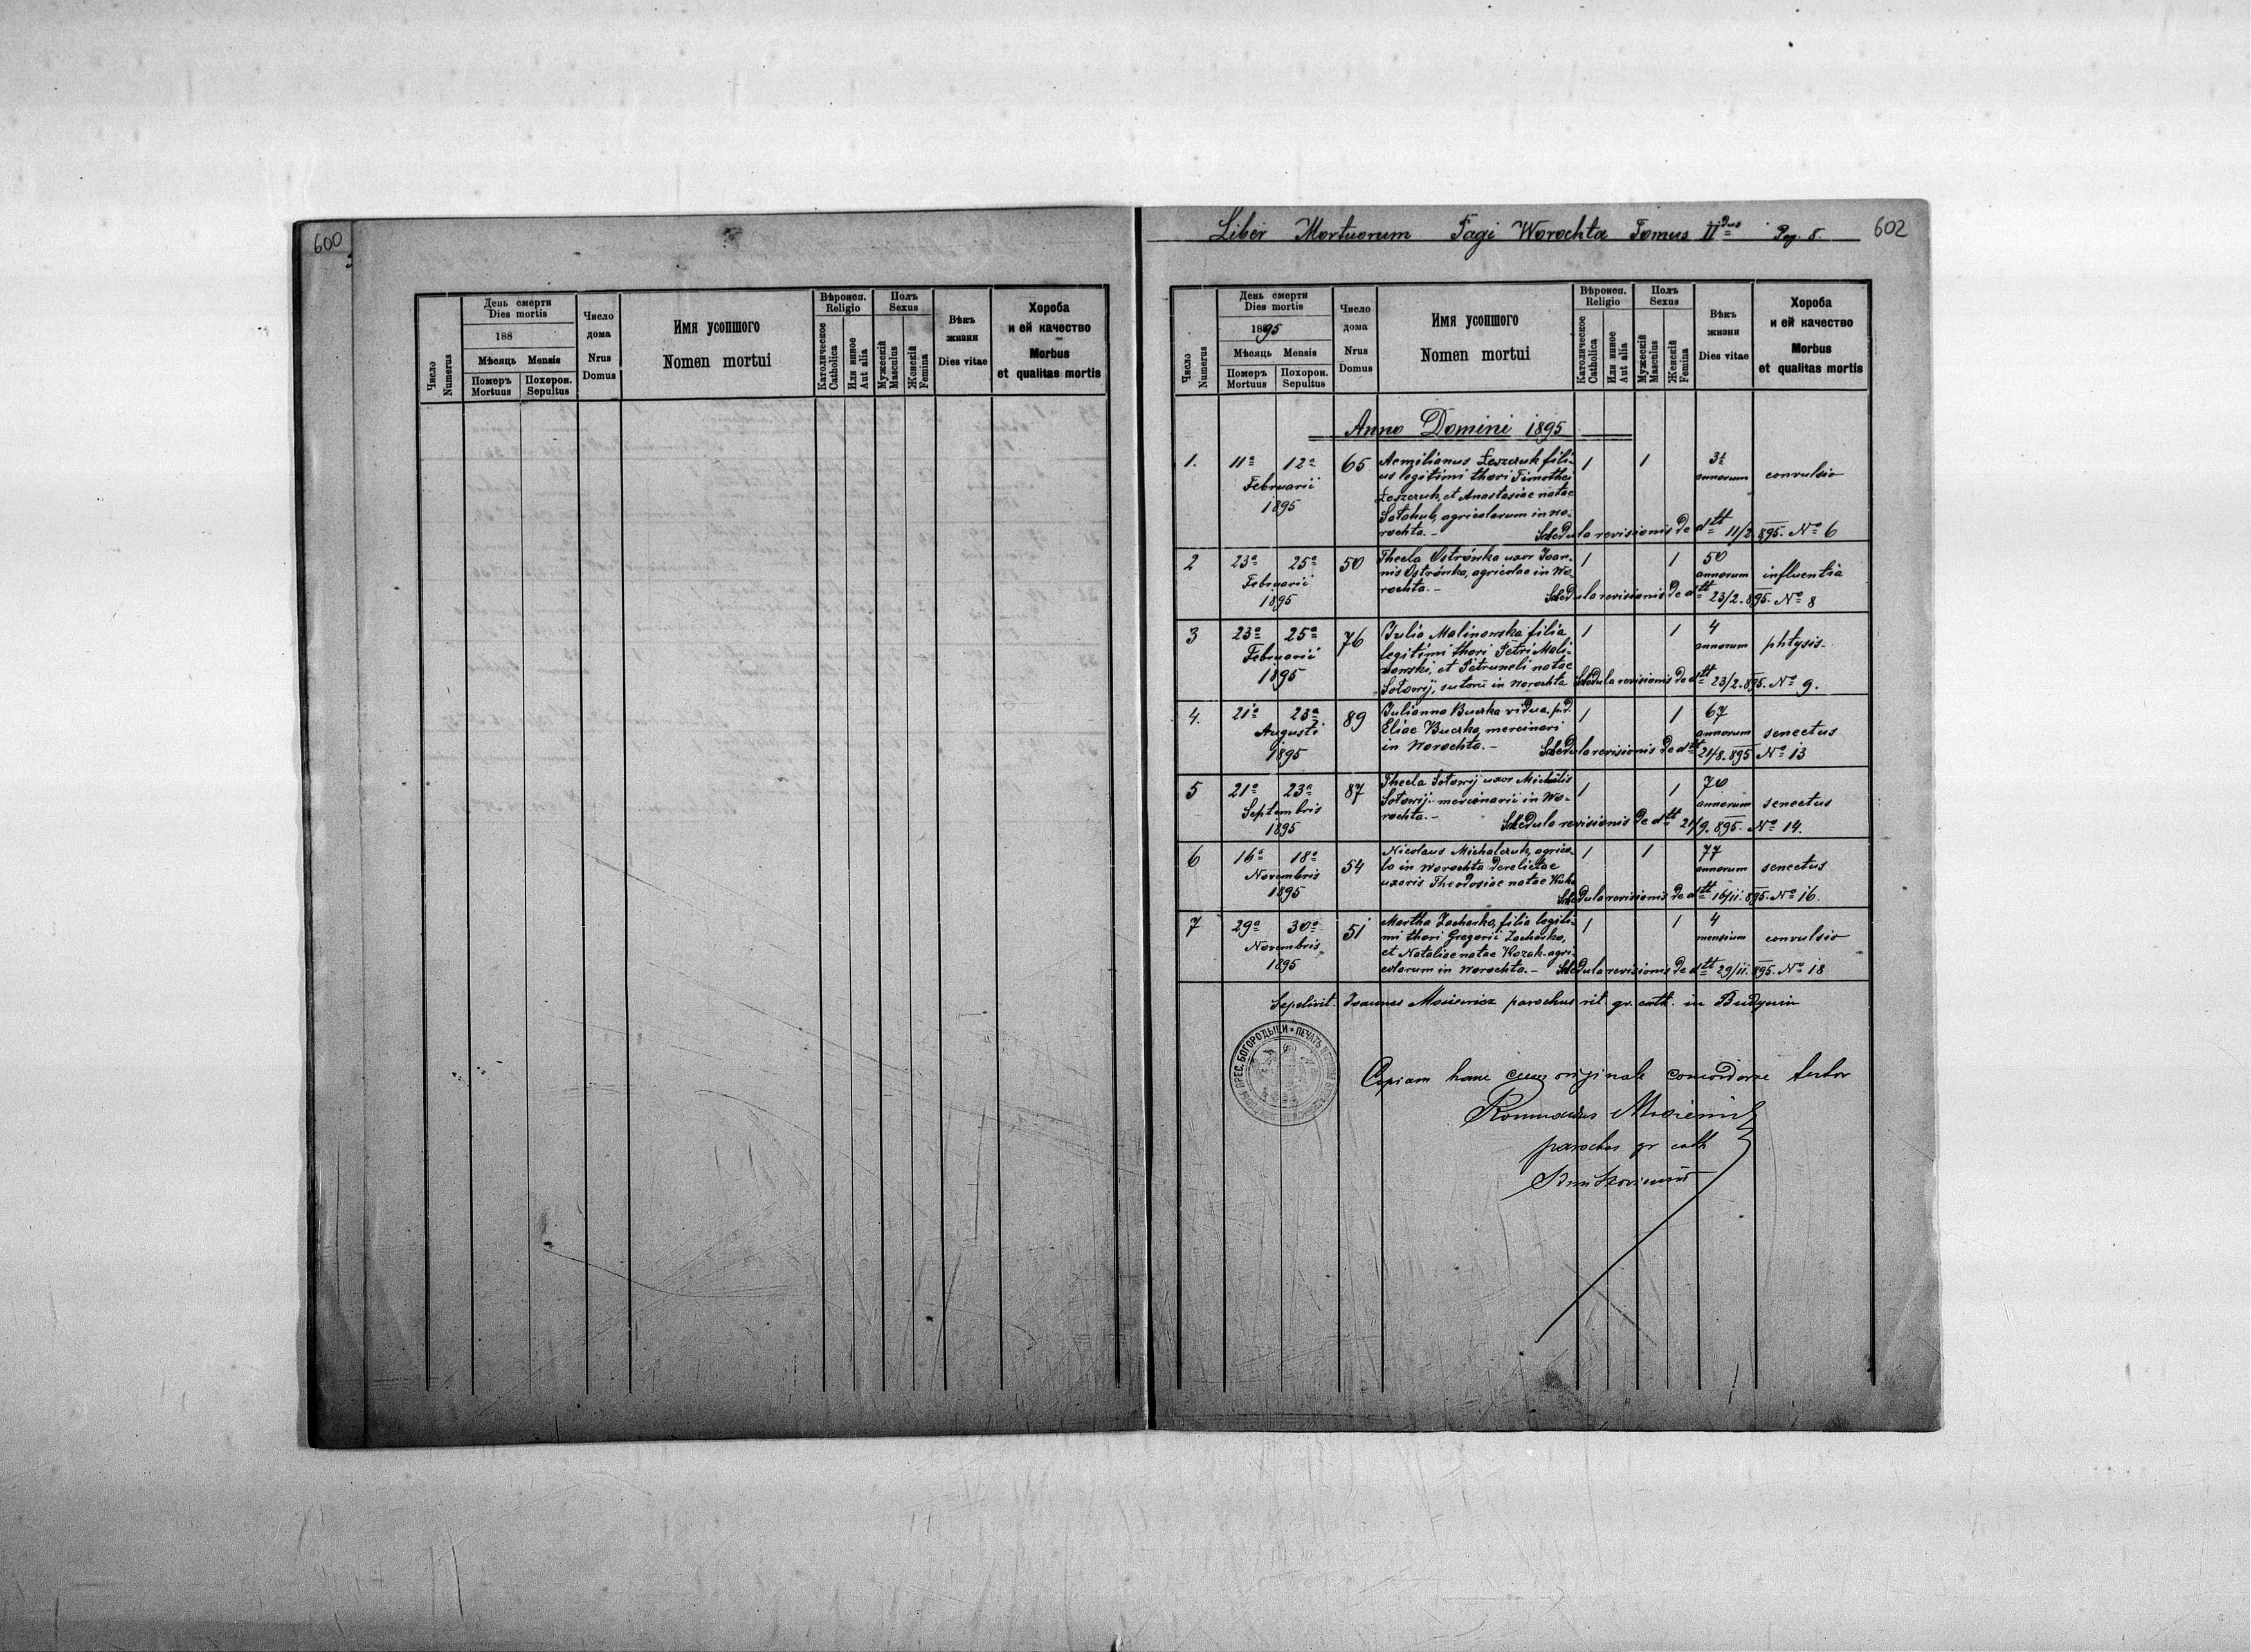 600
День смерти
Dies mortis
188
Мѣсяць Mensis
Померъ
Mortuus
Похорон.
Sepultus
Число
Numerus
Число
дома
Nrus
Domus
Имя усопшого
Nomen mortui
Вѣроисп.
Religio
Католическое
Catholica
Или инное
Aut alia
Полъ
Sexus
Мужескій
Masculus
Женскій
Femina
Вѣкъ
жизни
Dies vitae
Хороба
и ей качество
Morbus
et qualitas mortis
Liber Mortuorum Pagi Worochta Tomus IIdus Pag. 8.
602
Число
Numerus
День смерти
Dies mortis
1895
Мѣсяць Mensis
Померъ
Mortuus
Похорон.
Sepultus
Число
дома
Nrus
Domus
Имя усопшого
Nomen mortui
Вѣроисп.
Religio
Католическое
Catholica
Или инное
Aut alia
Полъ
Sexus
Мужескій
Masculus
Женскій
Femina
Вѣкъ
жизни
Dies vitae
Хороба
и ей качество
Morbus
et qualitas mortis
Anno Domini 1895
1. 11a 12a 65 Aemilianus Leszczuk fili- 1 1
us legitimi thori Timothei annorum convulsio
Februarii
Leszczuk, et Anastasiae natae
1895
Sołohub, agricolarum in Wo-
rochta.- Schedula revisionis de dtt 11/2.895. No 6
2 23a 25a 50 Thecla Ostrówka uxor Joan- 1 1 50
nis Ostrówka, agricolae in Wo- annorum influentia
Februarii
rochta.-
1895 Schedula revisionis de dtt 23/2.895. No 8
3 23a 25a 76 Julia Malinowska filia 1 1 4
legitimi thori Petri Mali- annorum phtysis.
Februarii
nowski, et Petruneli natae
1895
Sołowij, sutorii in Worochta Schedula revisionis de dtt 23/2.895. No 9.
4. 21a 23a 89 Julianna Buczko vidua p.d. 1 1 67
Eliae Buczko, mercinari annorum senectus
Augusti
in Worochta.- Schedula revisionis de dtt 21/8.895 No 13
1895
5 21a 23a 87 Thecla Sołowij uxor Michaelis 1 1 70
Sołowij mercinarii in Wo- annorum senectus
Septembris
rochta.- Schedula revisionis de dtt 21/9.895. No 14.
1895
6 16a 18a 54 Nicolaus Michalczuk, agrico- 1 1 77
la in Worochta derelictae annorum senectus
Novembris
uxoris Theodosiae natae
1895 Schedula revisionis de dtt 16/11.895. No 16.
7 29a 30a 51 Martha Zacharko, filia legiti- 1 1 4
mi thori Gregorii Zacharko, mensium convulsio
Novembris
et Nataliae natae Kozak agri-
1895
colarum in Worochta.- Schedula revisionis de dtt 29/11.895. No 18
Sepelivit. Joannes Mosiewicz parochus rit. gr. cath. in Budynin
ПРЕС. БОГОРОДЫЦИ • ПЕЧАТЬ
Copiam hanc cum originale concordare testor
parochus gr cath